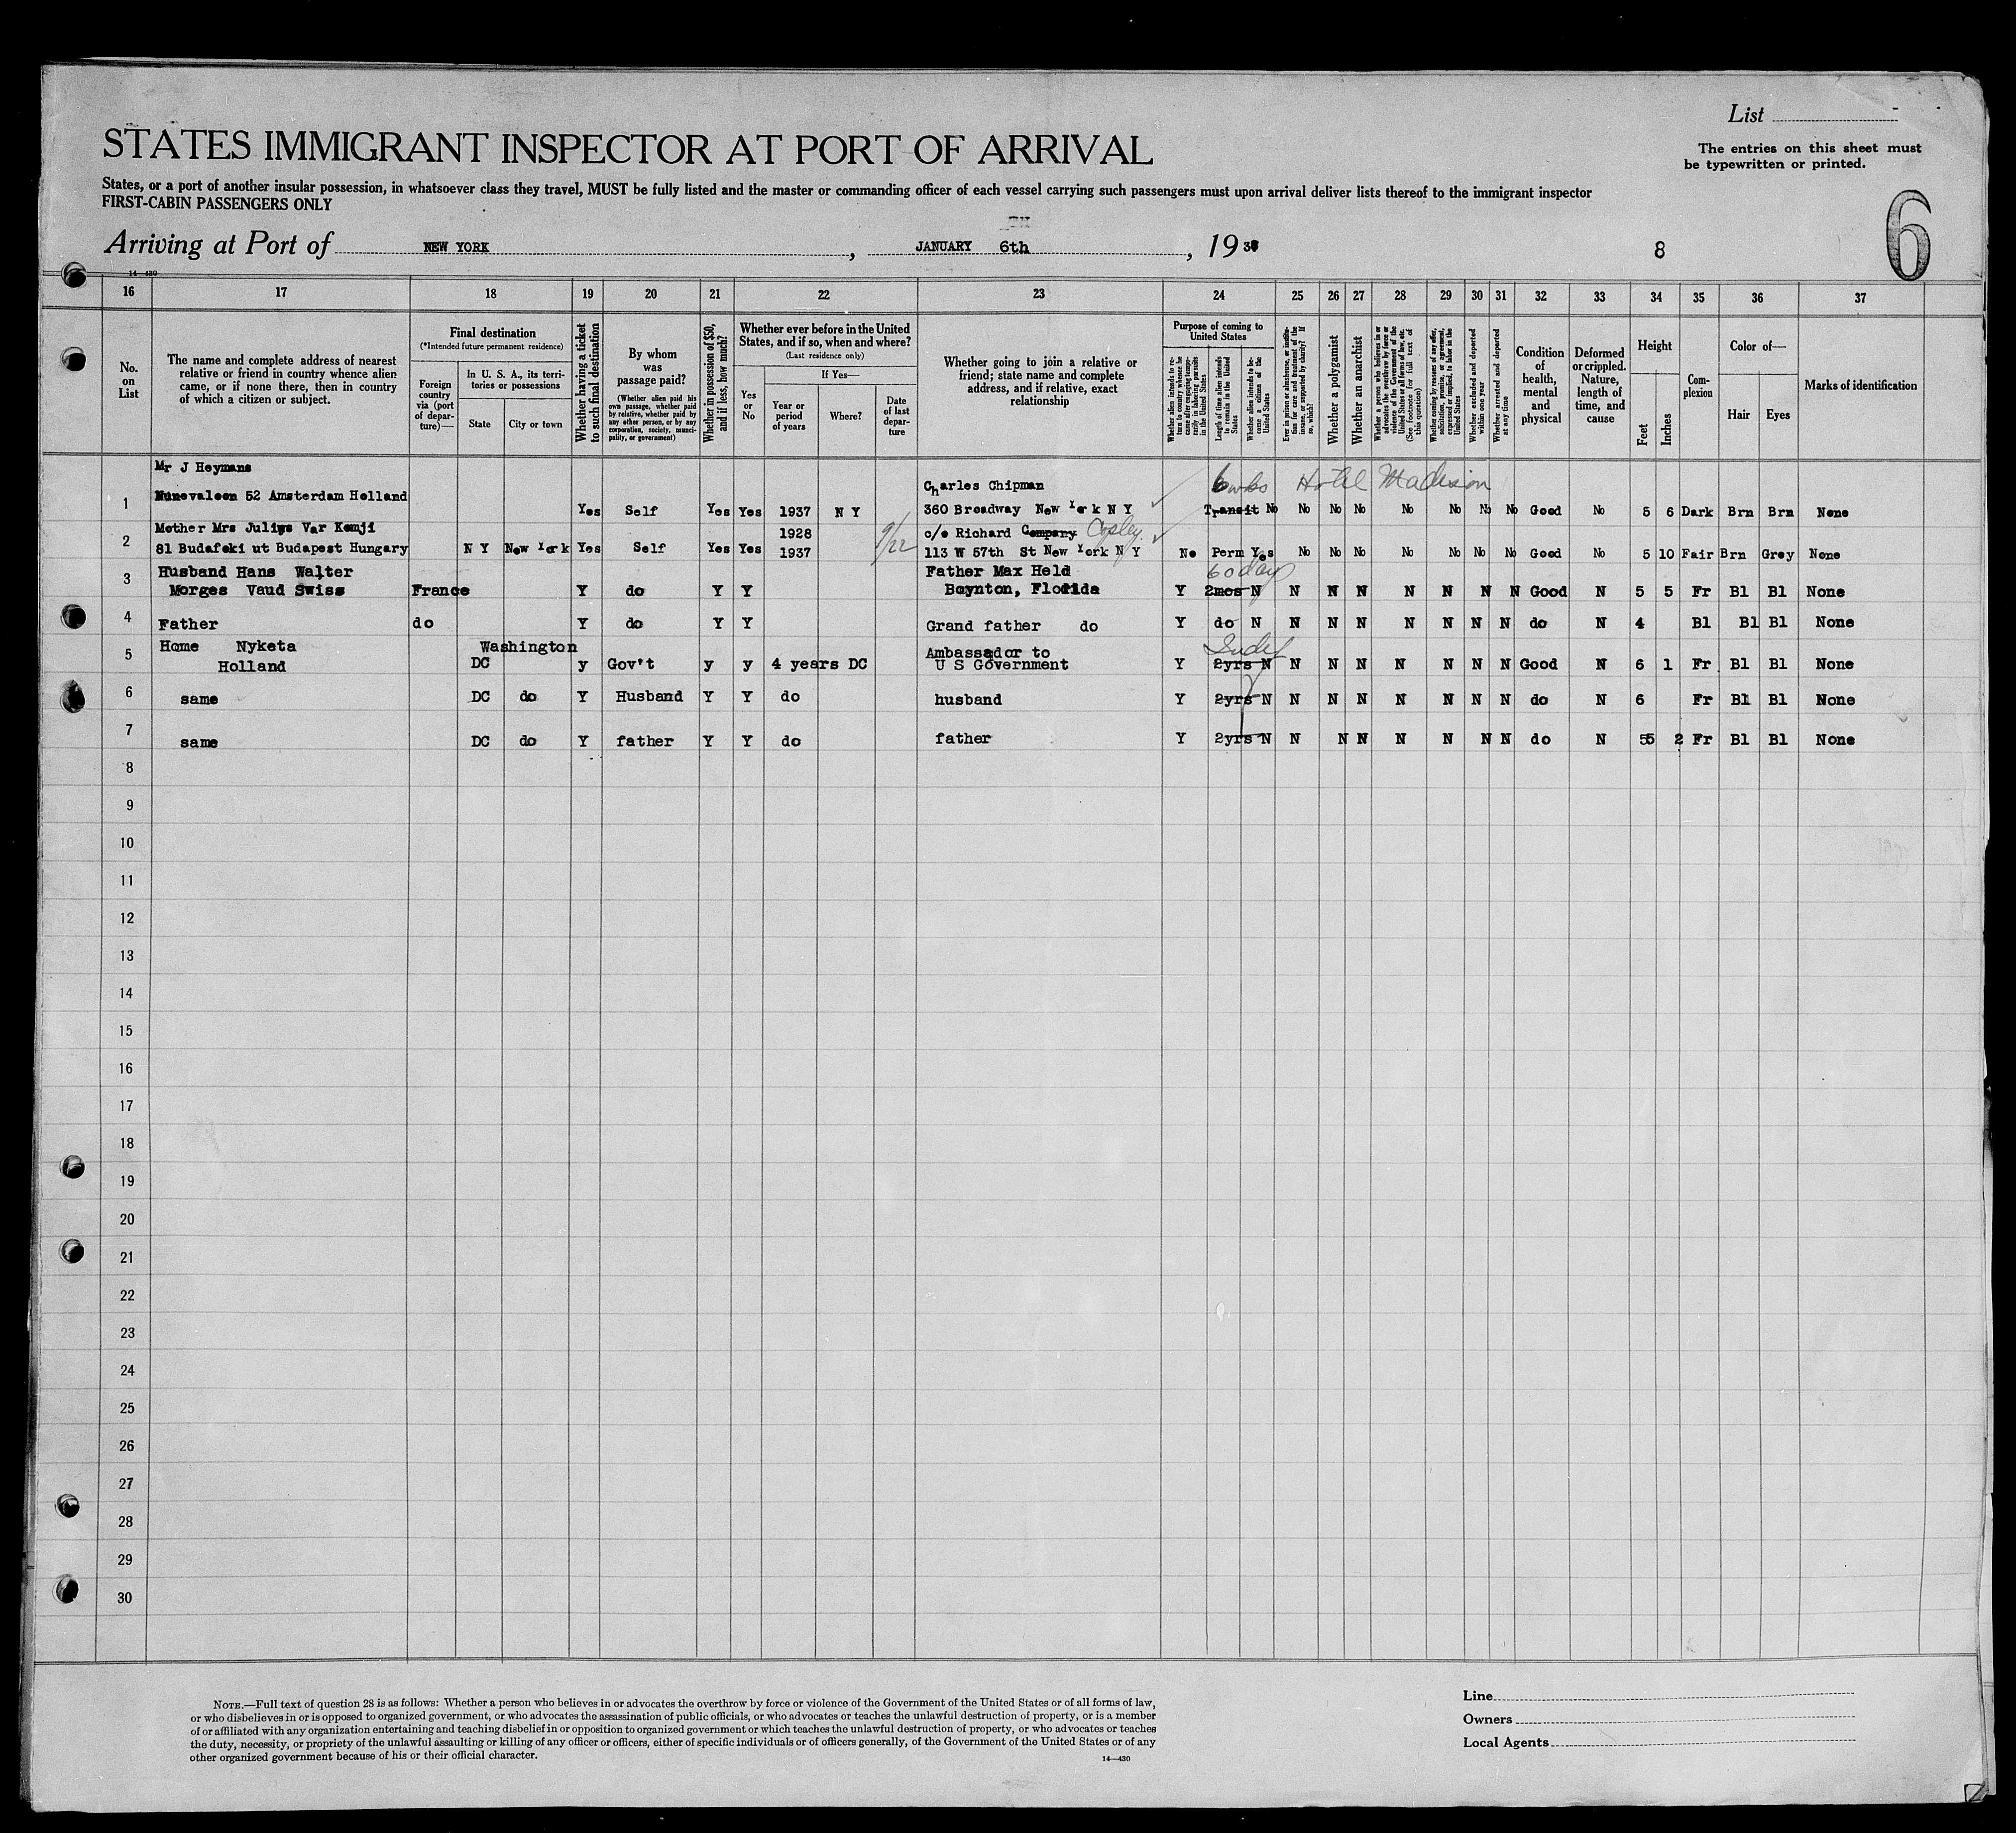 List
STATES IMMIGRANT INSPECTOR AT PORT OF ARRIVAL
The entries on this sheet must
be typewritten or printed.
States, or a port of another insular possession, in whatsoever class they travel, MUST be fully listed and the master or commanding officer of each vessel carrying such passengers must upon arrival deliver lists thereof to the immigrant inspector
FIRST-CABIN PASSENGERS ONLY
6
Arriving at Port of NEW YORK , JANUARY 6th , 1938
8
14—430
16 17 18 19 20 21 22 23 24 25 26 27 28 29 30 31 32 33 34 35 36 37
No. on List
The name and complete address of nearest relative or friend in country whence alien came, or if none there, then in country of which a citizen or subject.
Final destination
(*Intended future permanent residence)
Foreign country via (port of departure)—
In U. S. A., its territories or possessions
State
City or town
Whether having a ticket to such final destination
By whom was passage paid?
(Whether alien paid his own passage, whether paid by relative, whether paid by any other person, or by any corporation, society, municipality, or government)
Whether in possession of $50, and if less, how much?
Whether ever before in the United States, and if so, when and where?
(Last residence only)
Yes or No
If Yes—
Year or period of years
Where?
Date of last departure
Whether going to join a relative or friend; state name and complete address, and if relative, exact relationship
Purpose of coming to United States
Whether alien intends to return to country whence he came after engaging temporarily in laboring pursuits in the United States
Length of time alien intends to remain in the United States
Whether alien intends to become a citizen of the United States
Ever in prison or almshouse, or institution for care and treatment of the insane, or supported by charity? If so, which?
Whether a polygamist
Whether an anarchist
Whether a person who believes in or advocates the overthrow by force or violence of the Government of the United States or all forms of law, etc. (See footnote for full text of this question)
Whether coming by reasons of any offer, solicitation, promise, or agreement, expressed or implied, to labor in the United States
Whether excluded and deported within one year
Whether arrested and deported at any time
Condition of health, mental and physical
Deformed or crippled. Nature, length of time, and cause
Height
Feet
Inches
Complexion
Color of—
Hair
Eyes
Marks of identification
Mr J Heymans
6 wks Hotel Madison
1 Nunevaleen 52 Amsterdam Holland Yes Self Yes Yes 1937 N Y Charles Chipman
360 Broadway New York N Y Transit No No No No No No No No Good No 5 6 Dark Brn Brn None
Mother Mrs Julius Var Kemji 1928 9/22 c/o Richard Company Copley
2 81 Budafoki ut Budapest Hungary N Y New York Yes Self Yes Yes 1937 113 W 57th St New York N Y No Perm Yes No No No No No No No Good No 5 10 Fair Brn Grey None
Husband Hans Walter Father Max Held 60 days
3 Morges Vaud Swiss France Y do Y Y Boynton, Florida Y 2mos N N N N N N N N Good N 5 5 Fr Bl Bl None
4 Father do Y do Y Y Grand father do Y do N N N N N N N N do N 4 Bl Bl Bl None
Home Nyketa Washington Ambassador to Indef
5 Holland DC y Gov't y y 4 years DC U S Government Y 2yrs N N N N N N N N Good N 6 1 Fr Bl Bl None
6 same DC do Y Husband Y Y do husband Y 2yrs N N N N N N N N do N 6 Fr Bl Bl None
7 same DC do Y father Y Y do father Y 2yrs N N N N N N N N do N 55 2 Fr Bl Bl None
8
9
10
11
12
13
14
15
16
17
18
19
20
21
22
23
24
25
26
27
28
29
30
NOTE.—Full text of question 28 is as follows: Whether a person who believes in or advocates the overthrow by force or violence of the Government of the United States or of all forms of law,
or who disbelieves in or is opposed to organized government, or who advocates the assassination of public officials, or who advocates or teaches the unlawful destruction of property, or is a member
of or affiliated with any organization entertaining and teaching disbelief in or opposition to organized government or which teaches the unlawful destruction of property, or who advocates or teaches
the duty, necessity, or propriety of the unlawful assaulting or killing of any officer or officers, either of specific individuals or of officers generally, of the Government of the United States or of any
other organized government because of his or their official character.
14—430
Line
Owners
Local Agents